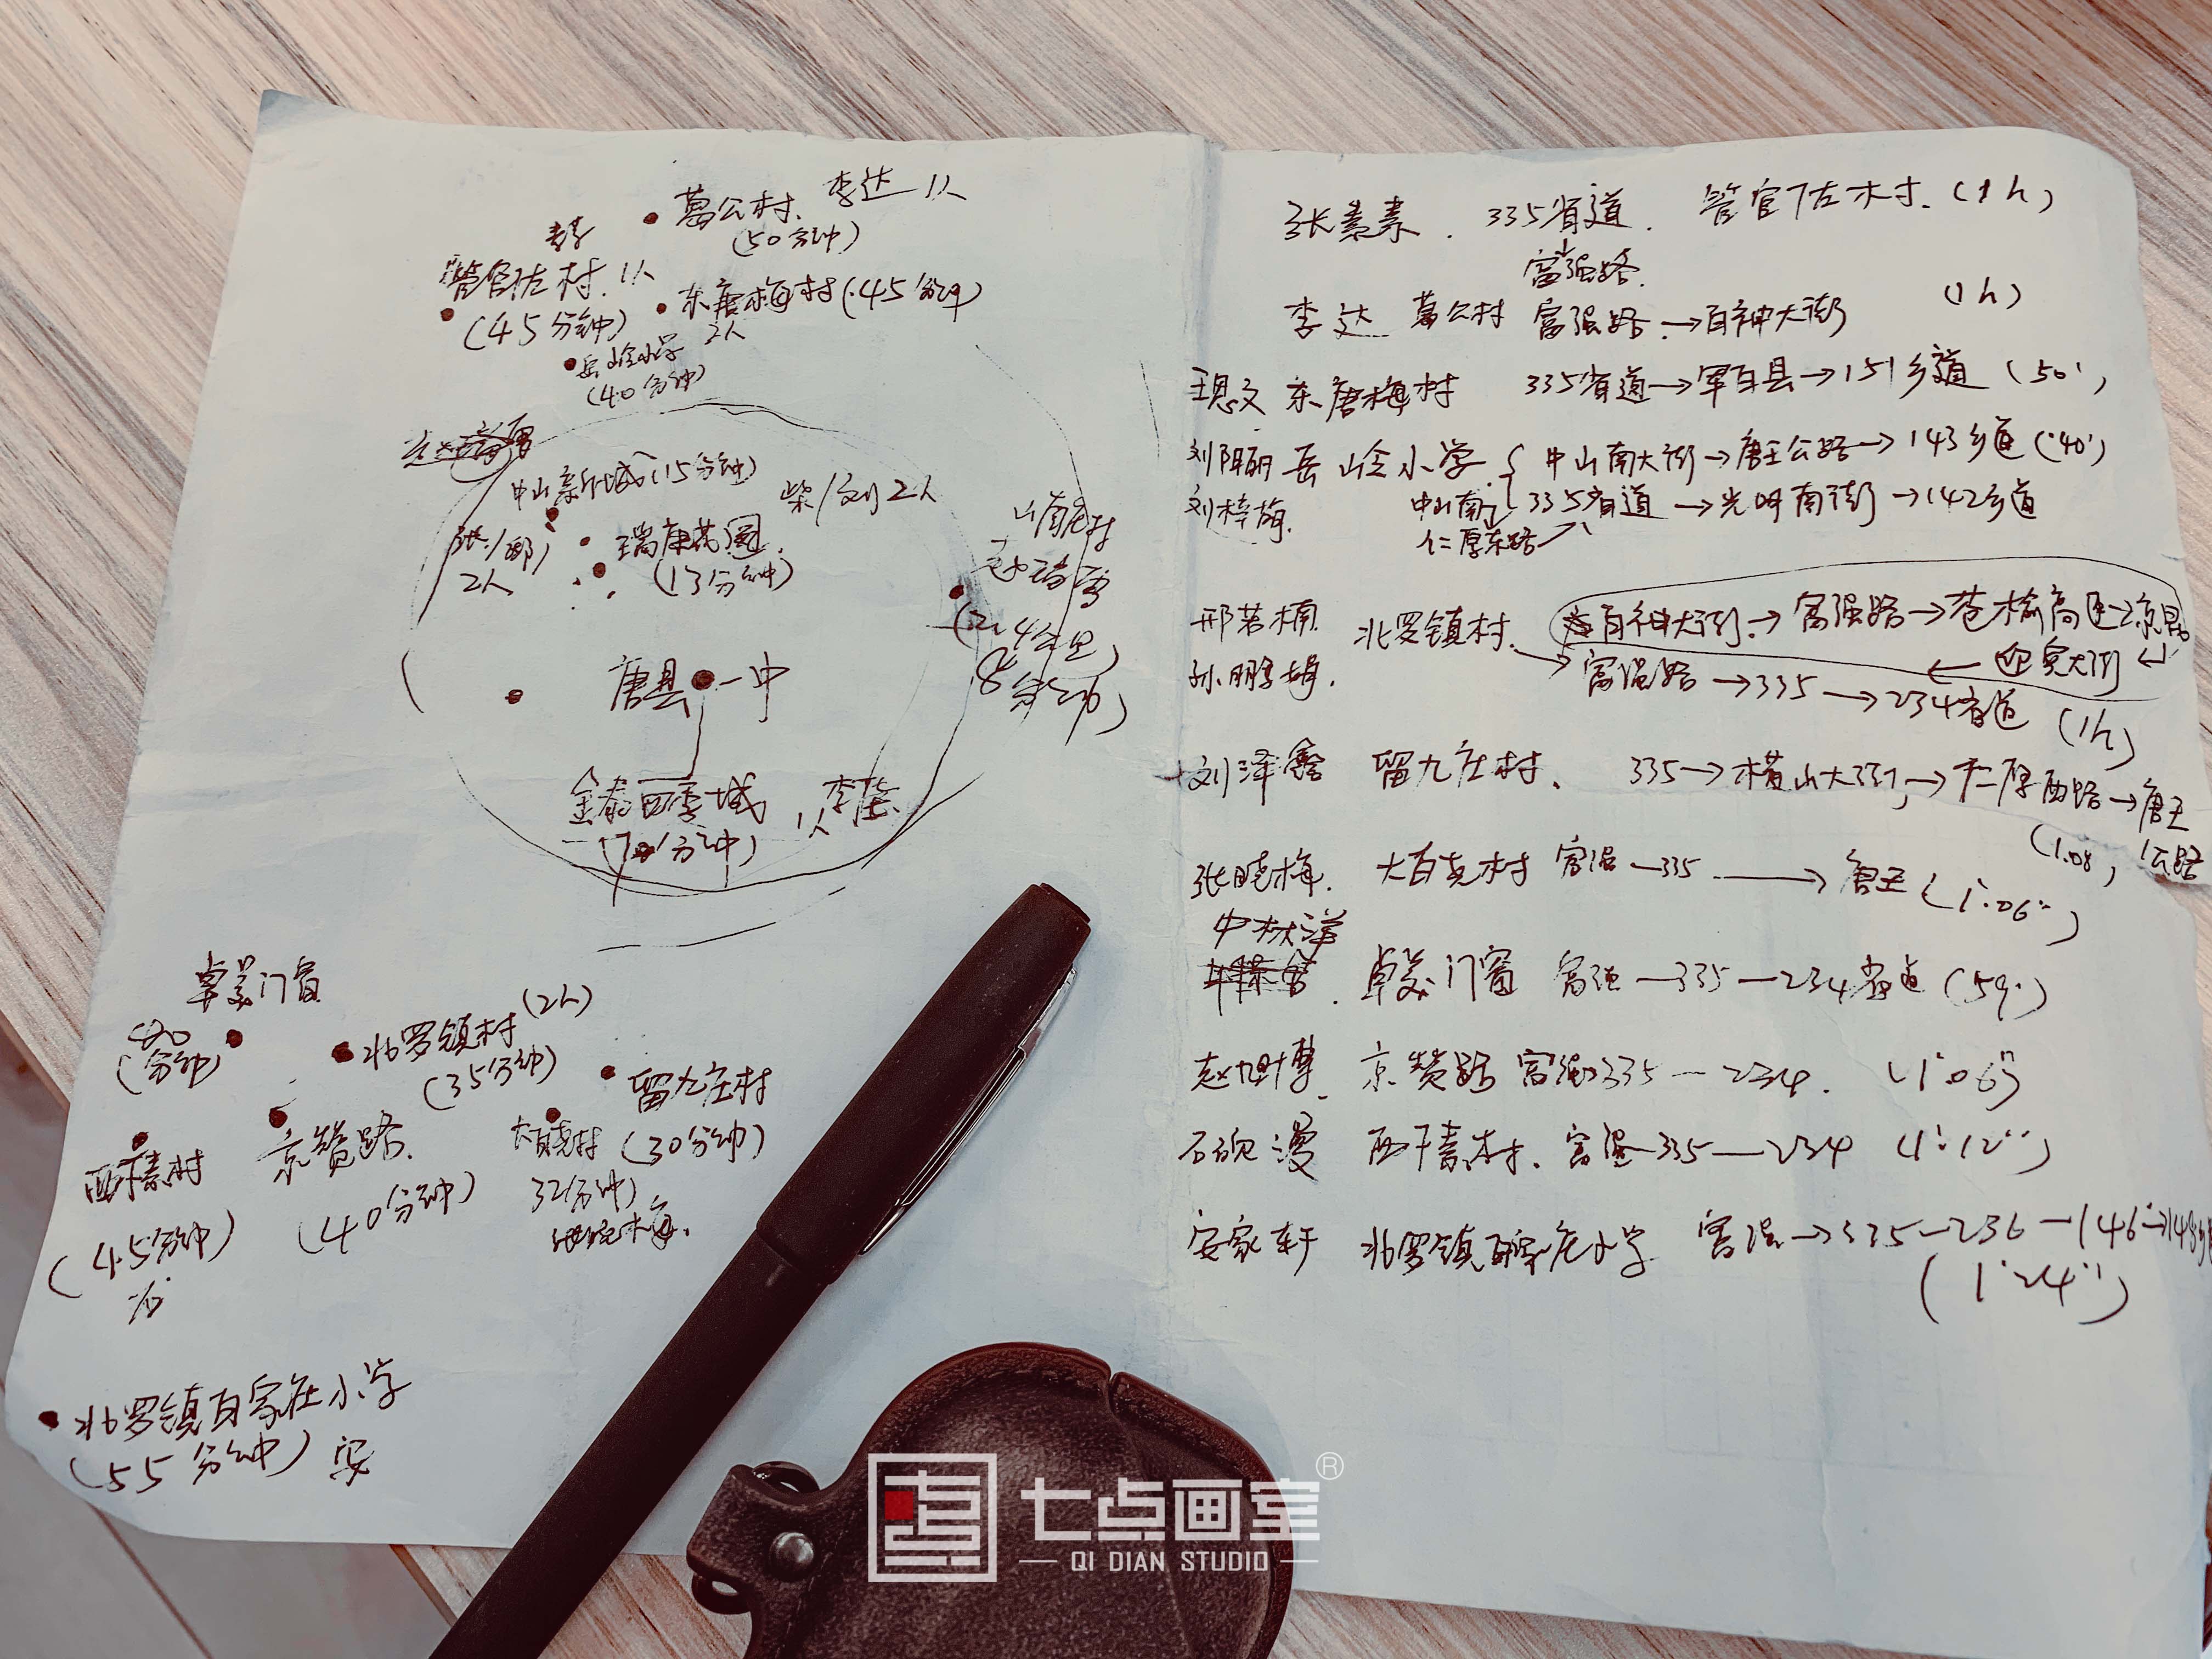 葛公村. 李达 1人
(50分钟)
管官佐村. 1人
(45分钟)
东唐梅村(45分钟)
2人
岳岭小学
(40分钟)
中山新城(15分钟)
柴/刘 2人
张/郡
2人
瑞康花园
(13分钟)
山南庄村
(2.4公里
8分钟)
唐县一中
金泰四季城
1人
卓美门窗
(40分钟)
北罗镇村(2人)
(35分钟)
留九庄村
(30分钟)
京赞路.
(40分钟)
大白尧村
32分钟)
张晓梅.
(45分钟)
石
北罗镇百家庄小学
(55分钟) 安
张素素. 335省道. 管官佐村. (1h)
富强路.
李达 葛公村 富强路.→百神大街 (1h)
王思文 东唐梅村 335省道→军白县→151乡道 (50')
刘阳丽 岳岭小学. 中山南大街→唐王公路→143乡道(40')
刘梓旗. 中山南 335省道→光明南街→142乡道
仁厚东路
邢若楠. 北罗镇村. 百神大街.→富强路→苍榆高速→京昆
迎宾大街
孙鹏娟. 富强路→335→234省道 (1h)
刘泽鑫 留九庄村. 335→横山大街→仁厚西路→唐王
公路
(1.08)
张晓梅. 大白尧村 富强—335→唐王(1'.06'')
卓美门窗 富强—335—234省道(59.)
赵旭博. 京赞路 富强335—234. (1'06'')
石砚漫 富强—335—234 (1'.12'')
安家轩 北罗镇百家庄小学 富强→335—236—146→148
(1'24'')
七点画室®
QI DIAN STUDIO